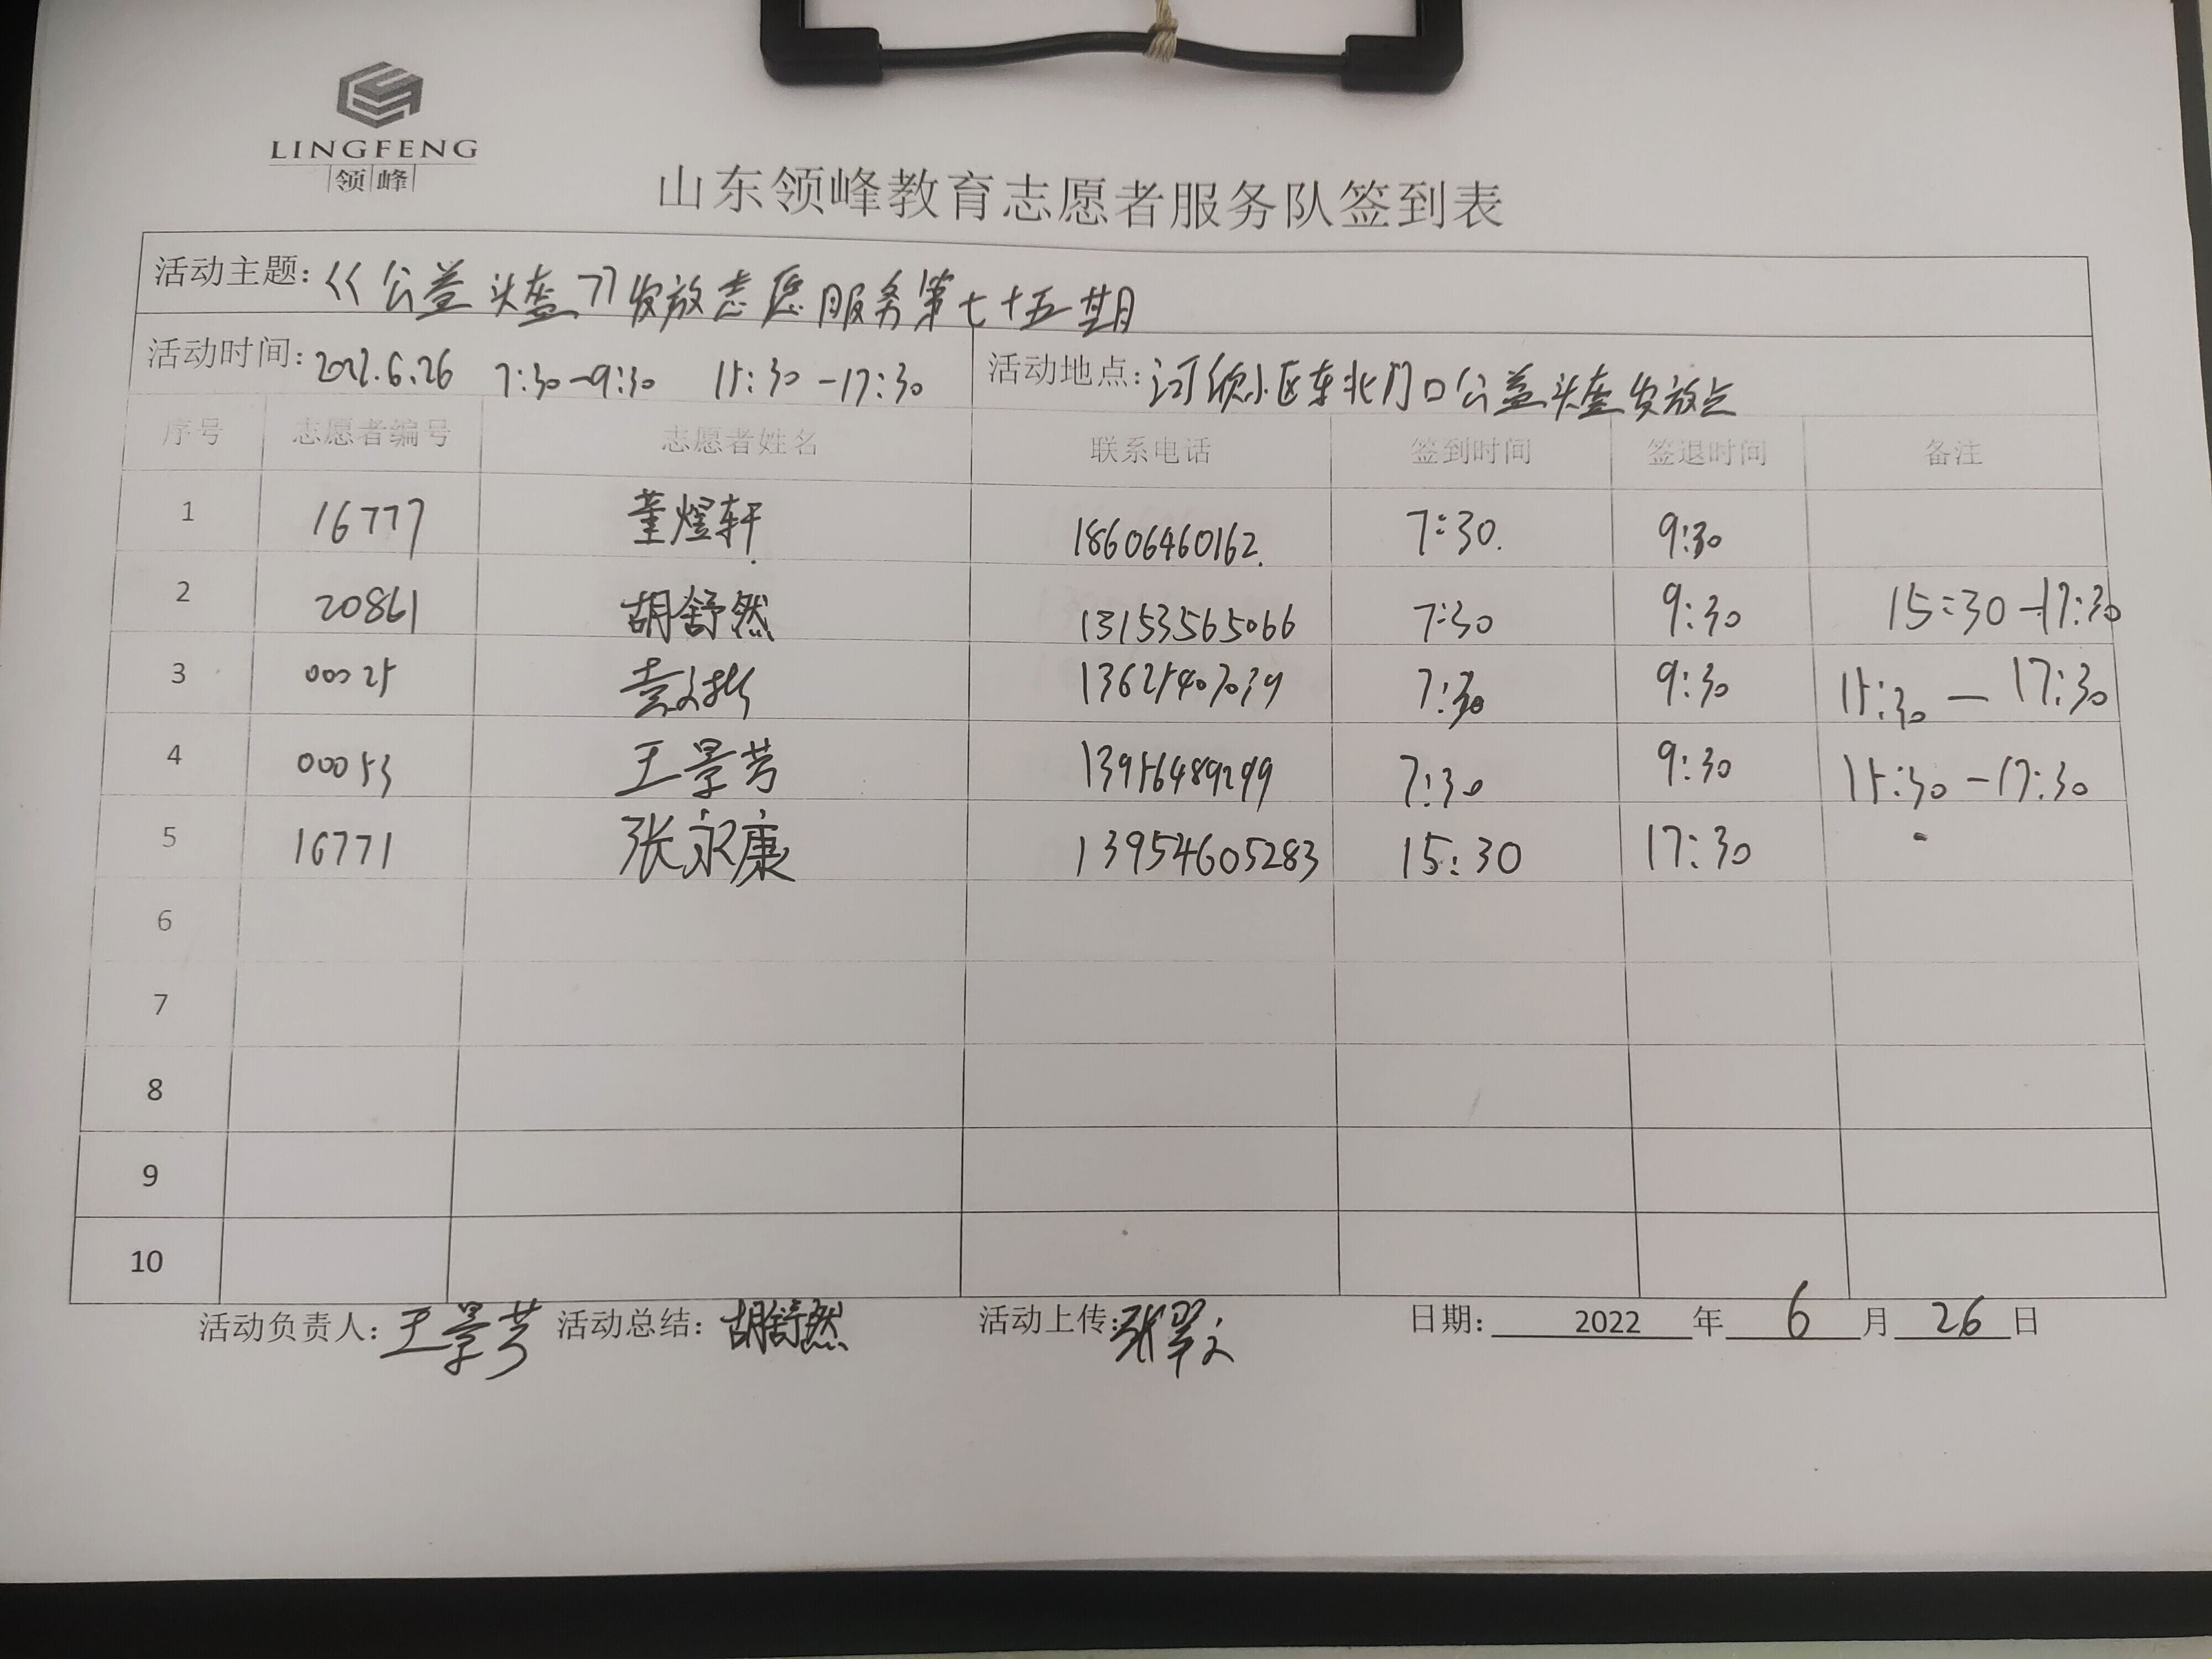 LINGFENG
领峰
山东领峰教育志愿者服务队签到表
活动主题：《公益头盔》发放志愿服务第七十五期
活动时间：2022.6.26 7:30-9:30 15:30-17:30 活动地点：河欣小区东北门口公益头盔发放点
序号 志愿者编号 志愿者姓名 联系电话 签到时间 签退时间 备注
1 16777 董煜轩 18606460162. 7:30. 9:30
2 20861 胡舒然 13153565066 7:30 9:30 15:30-17:30
3 00025 7:30 9:30 15:30-17:30
4 00053 王景芳 13956489299 7:30 9:30 15:30-17:30
5 16771 张永康 13954605283 15:30 17:30
6
7
8
9
10
活动负责人：王景芳 活动总结：胡舒然 活动上传：张翠 日期： 2022 年 6 月 26 日